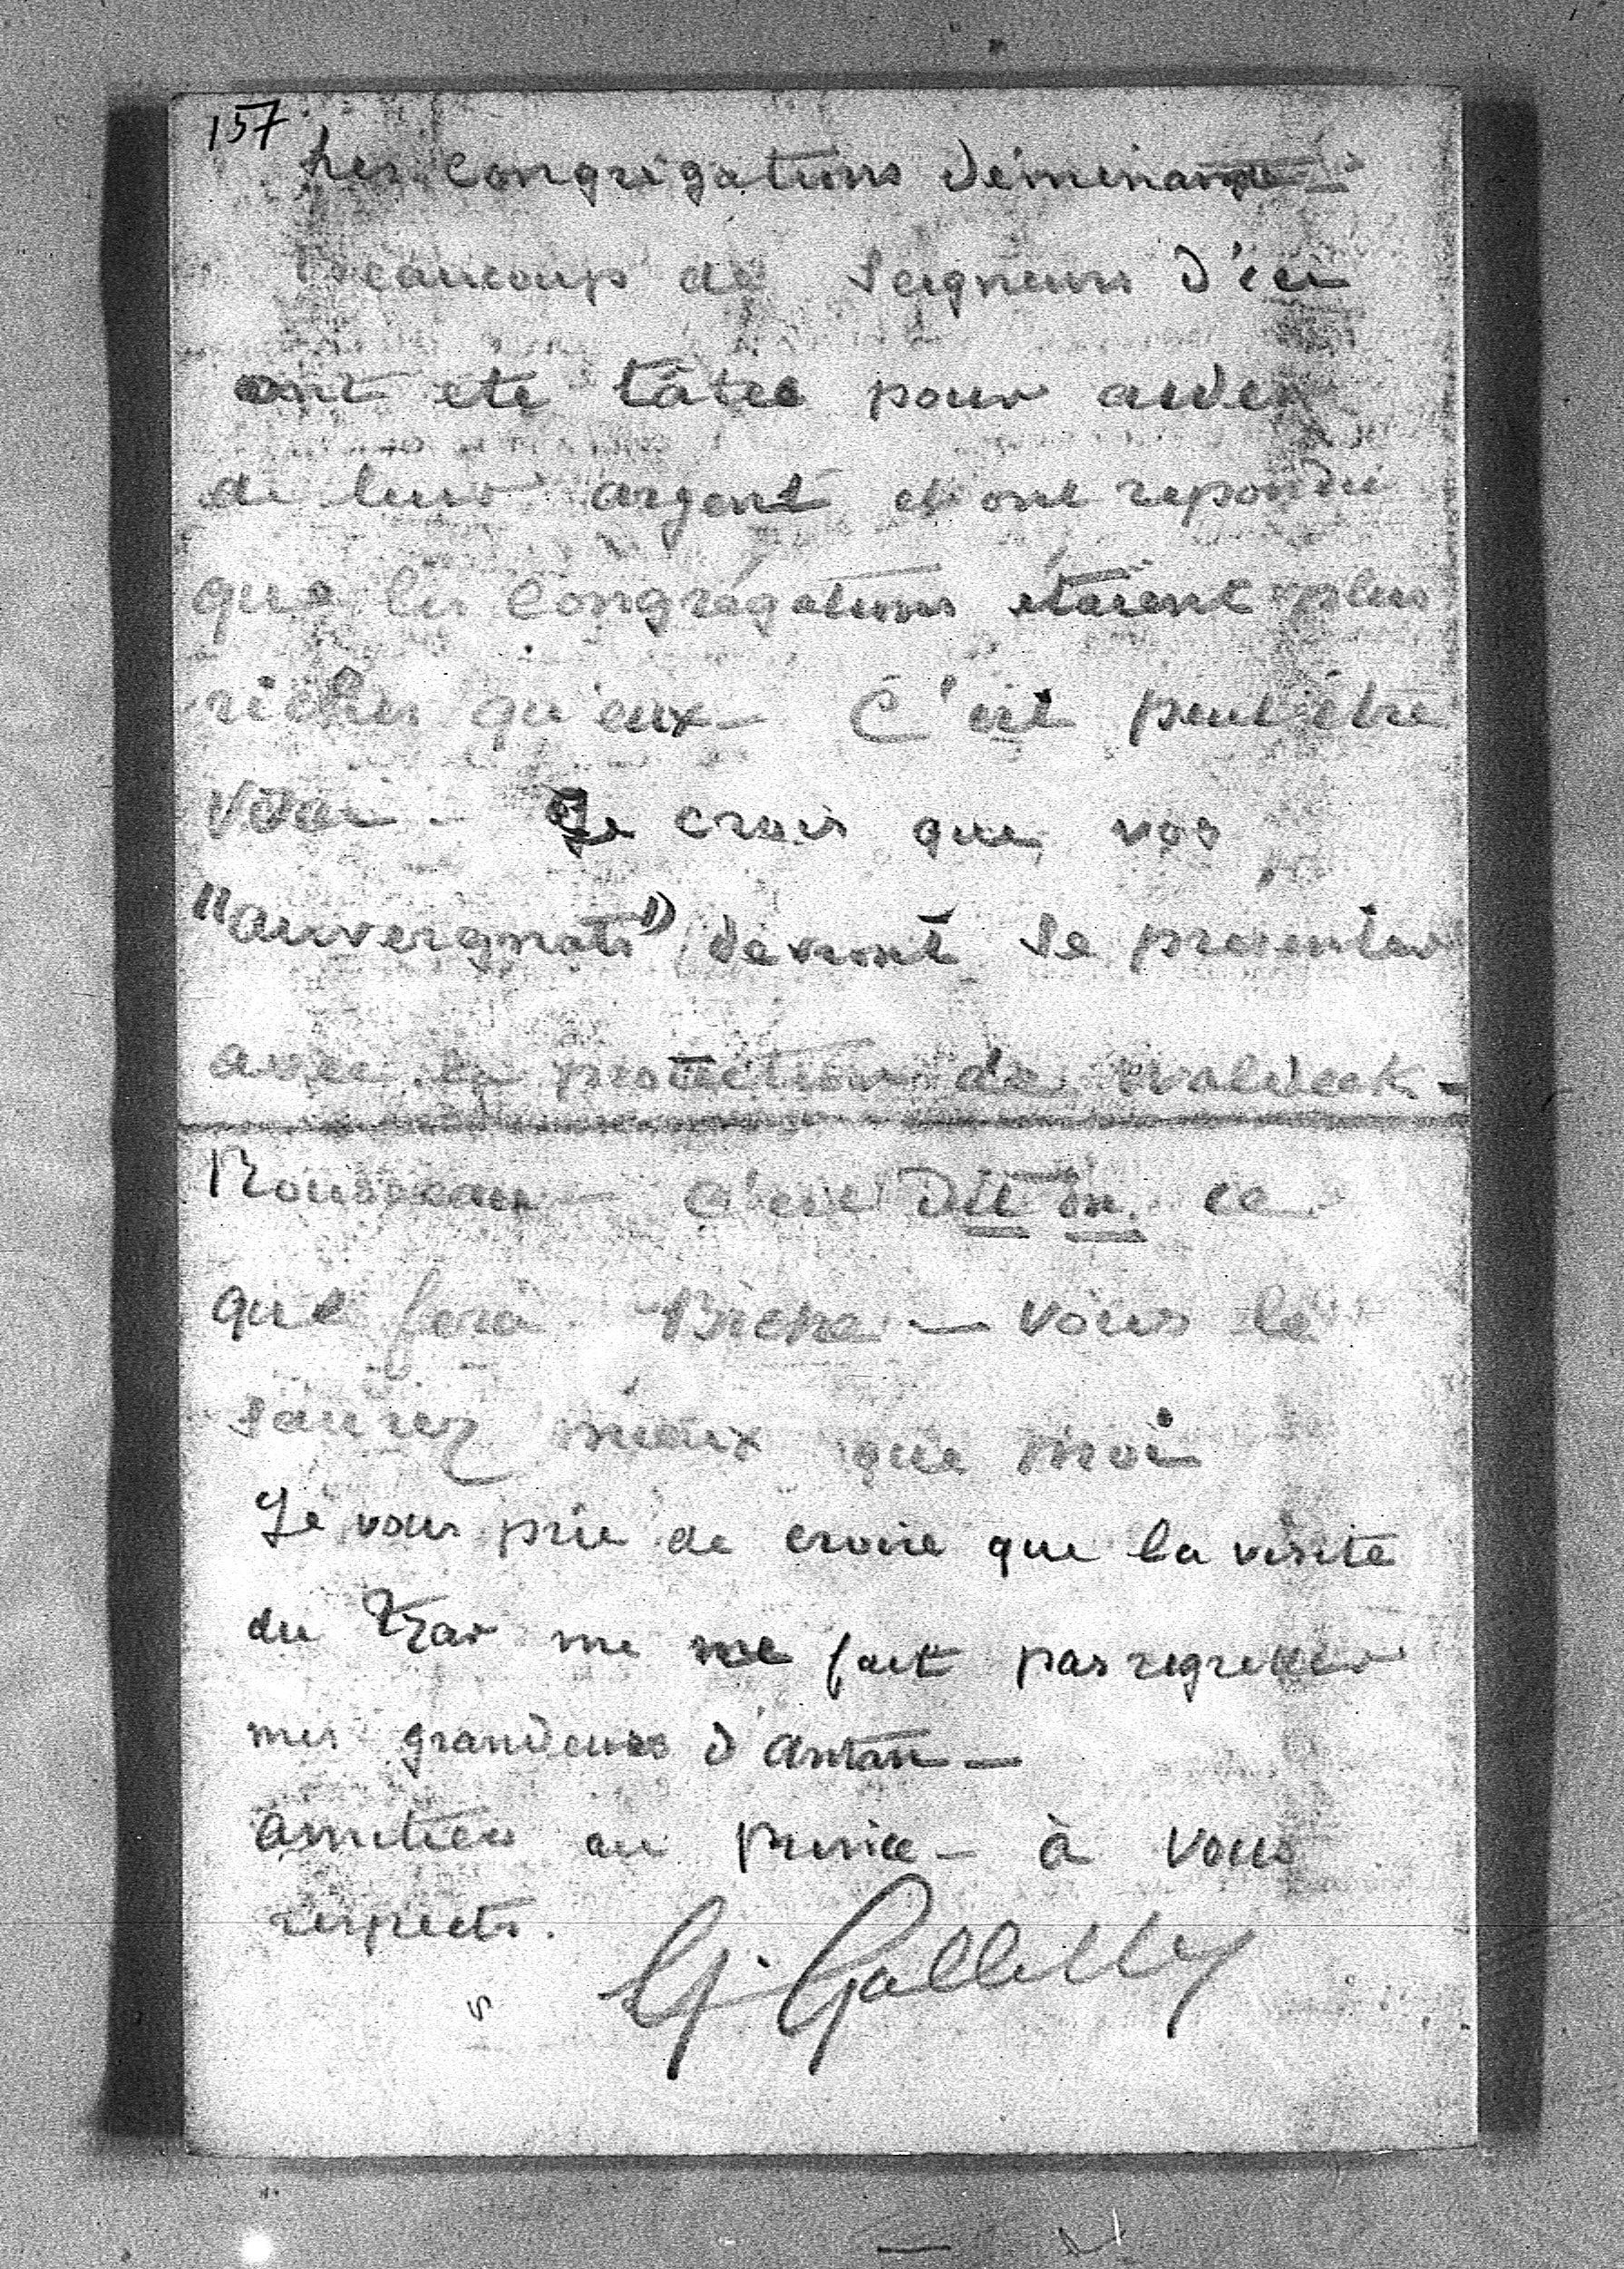 157
Les Congrégations déménagent -
beaucoup de Seigneurs d'ici
ont été tâtés pour aider
de leur argent et ont repondu
que les Congrégations étaient plus
riches qu'eux - C'est peut être
vrai - Je crois que vos
"auvergnats" devront se presenter
avec la protection de Waldeck -
Rousseau - C'est dit on ce
que fera - vous le
saurez mieux que moi
Je vous prie de croire que la visite
du Tzar me ne fait pas regretter
mes grandeurs d'antan -
amitiés au prince - à vous
respects.
G. Galliffet